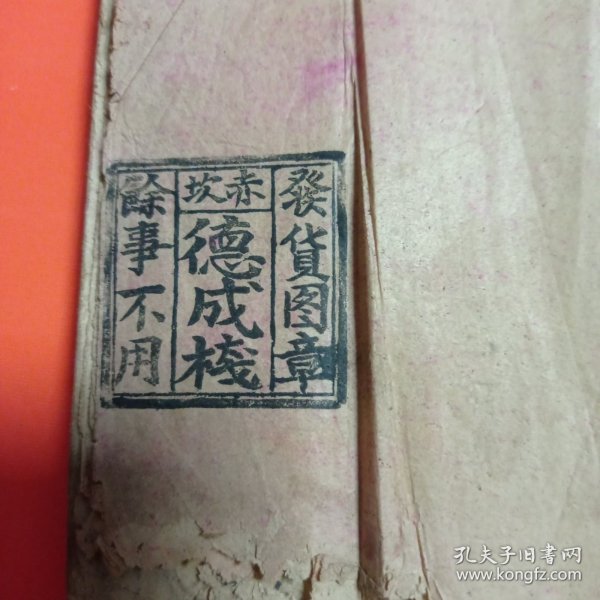 發貨图章
赤坎
德成棧
餘事不用
孔夫子旧書网
www.kongfz.com